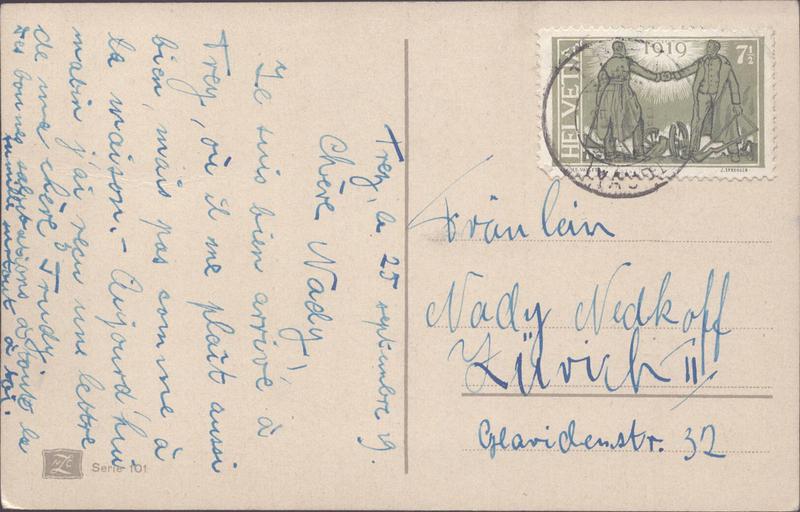 Trey, le 25 septembre 19.
Chère Nady!
Je suis bien arrivé à
Trey, où il me plaît aussi
bien, mais pas comme à
la maison. – Aujourd'hui
matin j'ai reçu une lettre
de ma chère Trudy.
Des bonnes salutations à toute la
famille surtout à toi.
HELVETIA
1919
7½
Fräulein
Nady Nedkoff
Zürich II
Glavidenstr. 32
Serie 101